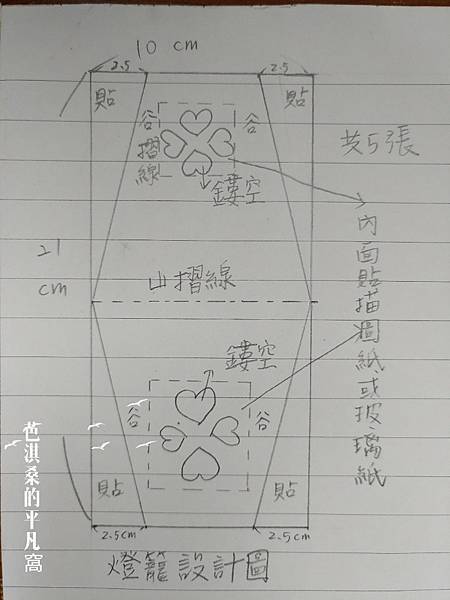 10 cm
2.5
2.5
貼
貼
谷
摺
線
谷
共5張
鏤空
21
cm
山摺線
內面貼描圖紙或玻璃紙
鏤空
谷
谷
貼
貼
2.5cm
2.5cm
燈籠設計圖
芭淇桑的平凡窩